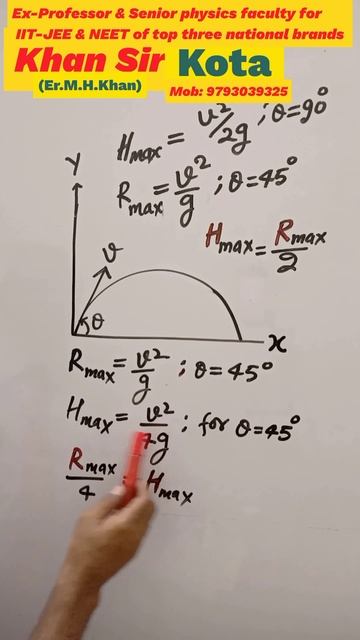 Ex-Professor & Senior physics faculty for
IIT-JEE & NEET of top three national brands
Khan Sir Kota
(Er.M.H.Khan)
Mob: 9793039325
Hmax = v²/2g ; θ=90°
Rmax = v²/g ; θ=45°
Hmax = Rmax/2
Y
v
θ
x
Rmax = v²/g ; θ=45°
Hmax = v²/4g ; for θ=45°
Rmax/4 = Hmax